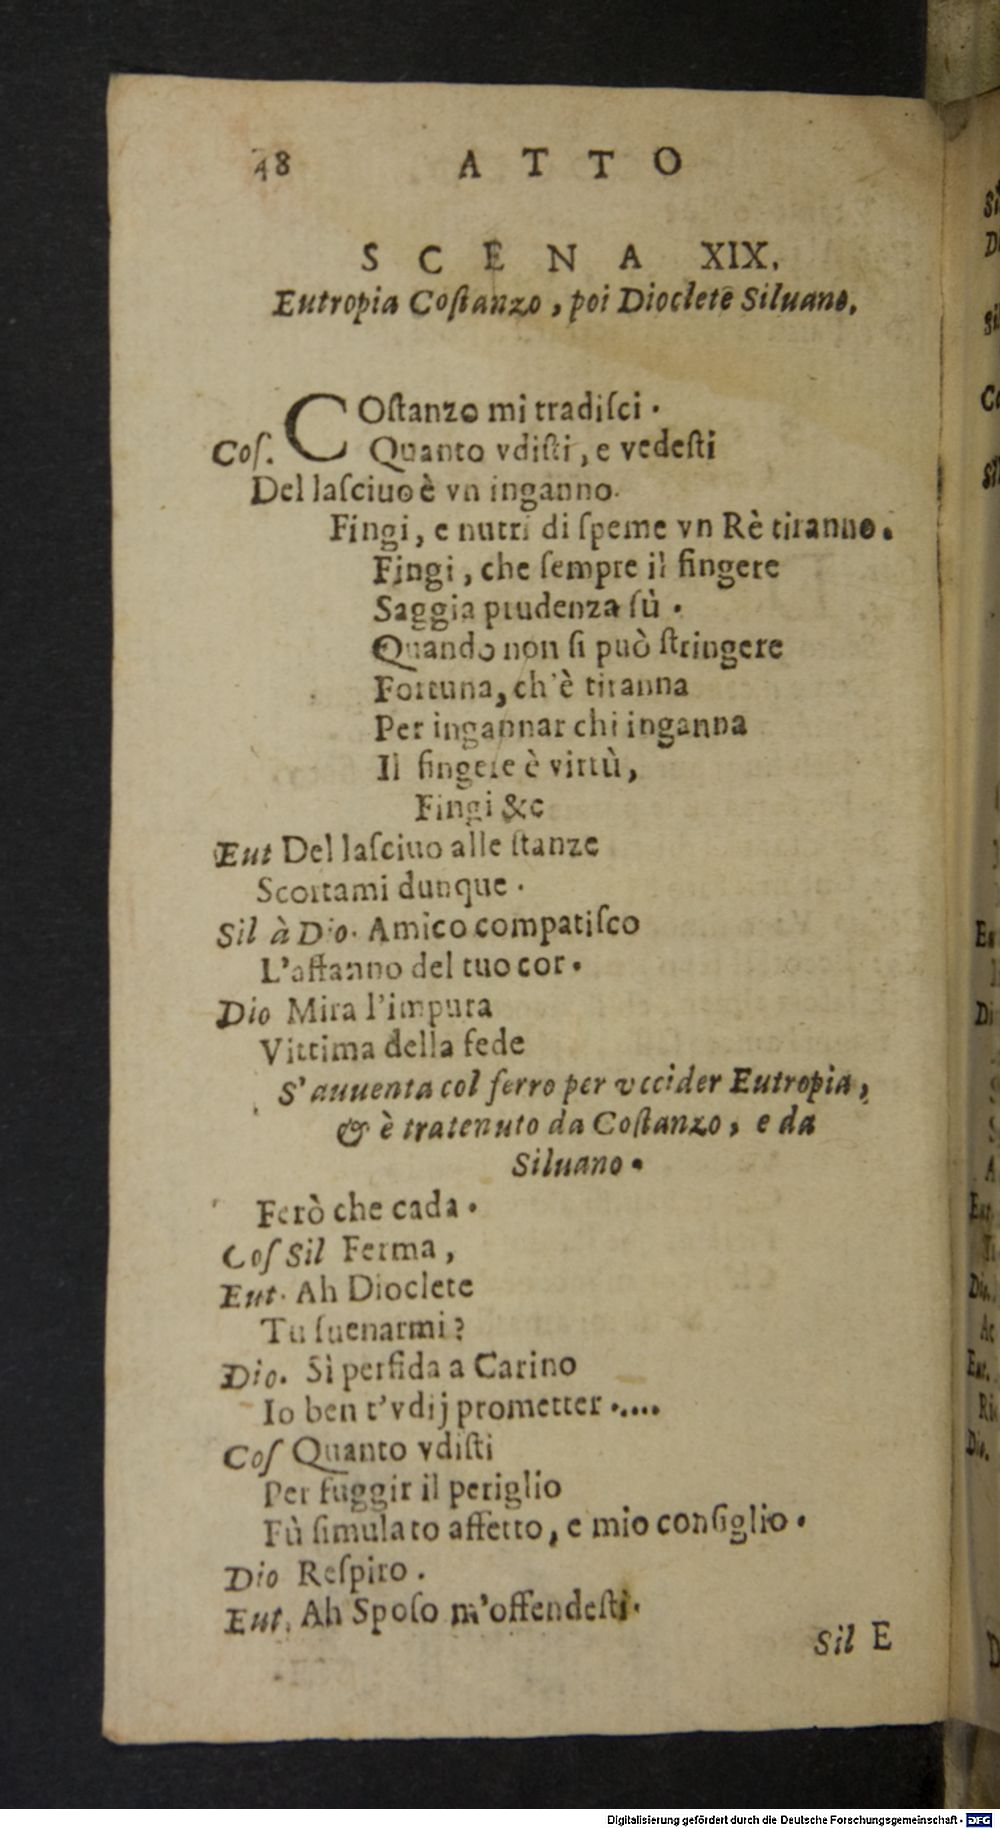 48 ATTO
SCENA XIX.
Eutropia Coſtanzo, poi Dioclete Siluano.
COſtanzo mi tradiſci.
Coſ. Quanto vdiſti, e vedeſti
Del laſciuo è vn inganno.
Fingi, e nutri di ſpeme vn Rè tiranno.
Fingi, che ſempre il fingere
Saggia prudenza fù.
Quando non ſi può ſtringere
Fortuna, ch'è tiranna
Per ingannar chi inganna
Il fingere è virtù,
Fingi &c
Eut Del laſciuo alle ſtanze
Scortami dunque.
Sil à Dio. Amico compatiſco
L'affanno del tuo cor.
Dio Mira l'impura
Vittima della fede
S'auuenta col ferro per vccider Eutropia,
& è tratenuto da Coſtanzo, e da
Siluano.
Ferò che cada.
Coſ Sil Ferma,
Eut. Ah Dioclete
Tu ſuenarmi?
Dio. Sì perfida a Carino
Io ben t'vdij prometter.....
Coſ Quanto vdiſti
Per fuggir il periglio
Fù ſimulato affetto, e mio conſiglio.
Dio Reſpiro.
Eut. Ah Spoſo m'offendeſti.
Sil E
Digitalisierung gefördert durch die Deutsche Forschungsgemeinschaft - DFG